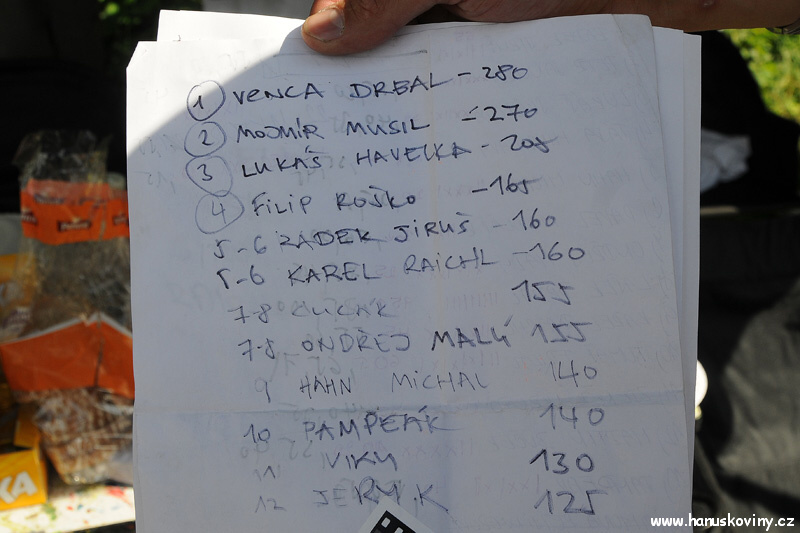 1 VENCA DRBAL - 280
2 MOJMÍR MUSIL - 270
3 LUKÁŠ HAVELKA - 205
4 FILIP ROŠKO - 165
5-6 RADEK JIRUŠ - 160
5-6 KAREL RAICHL - 160
7-8 155
7-8 ONDŘEJ MALÝ 155
9 HAHN MICHAL 140
10 140
11 VIKY 130
12 JERRY.K 125
KA
www.hanuskoviny.cz